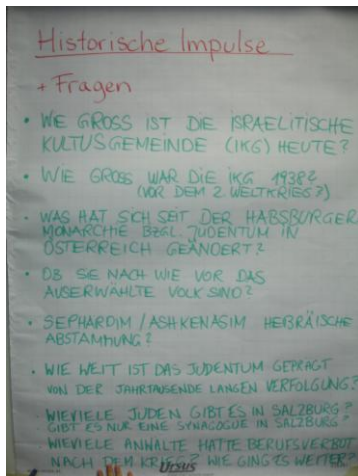 Historische Impulse
+ Fragen
• WIE GROSS IST DIE ISRAELITISCHE
KULTUSGEMEINDE (IKG) HEUTE?
• WIE GROSS WAR DIE IKG 1938?
(VOR DEM 2. WELTKRIEG?)
• WAS HAT SICH SEIT DER HABSBURGER
MONARCHIE BZGL. JUDENTUM IN
ÖSTERREICH GEÄNDERT?
• OB SIE NACH WIE VOR DAS
AUSERWÄHLTE VOLK SIND?
• SEPHARDIM / ASHKENASIM HEBRÄISCHE
ABSTAMMUNG?
• WIE WEIT IST DAS JUDENTUM GEPRÄGT
VON DER JAHRTAUSENDE LANGEN VERFOLGUNG?
• WIEVIELE JUDEN GIBT ES IN SALZBURG?
GIBT ES NUR EINE SYNAGOGE IN SALZBURG?
• WIEVIELE ANWÄLTE HATTE BERUFSVERBOT
NACH DEM KRIEG? WIE GING'S WEITER?
Ursus